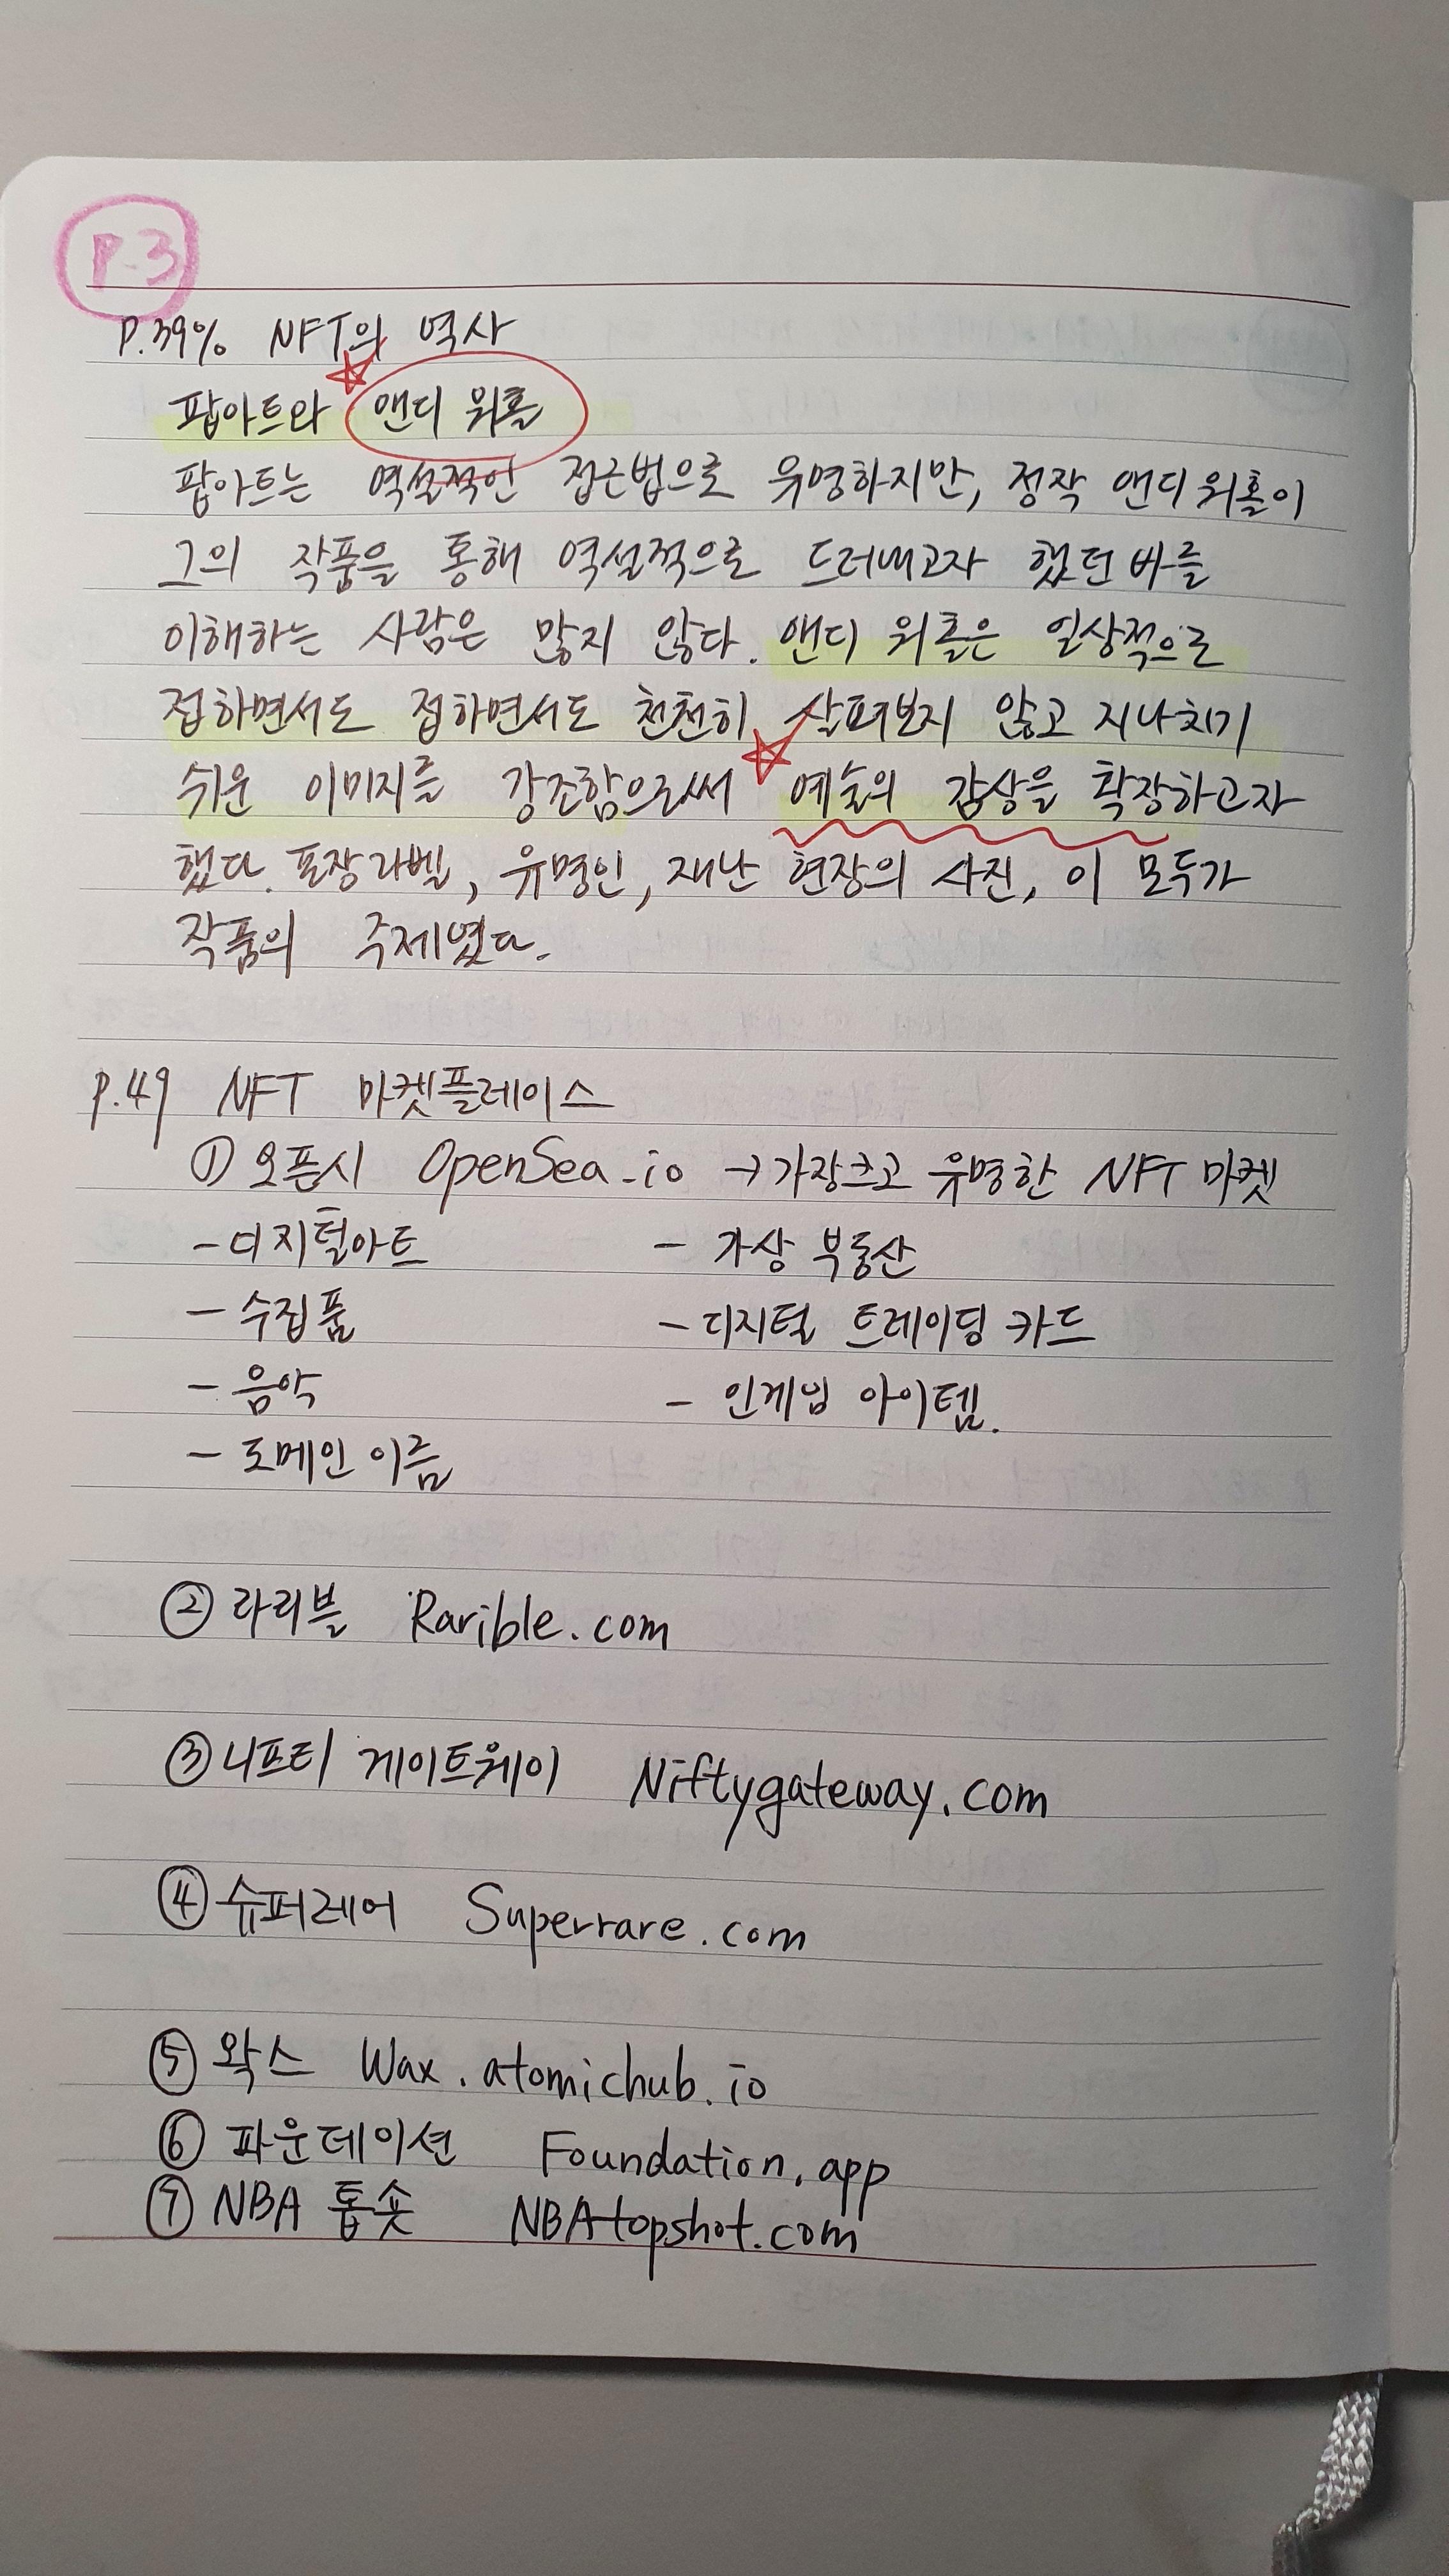 P.3
P.39% NFT의 역사
팝아트와 앤디 워홀
팝아트는 역설적인 접근법으로 유명하지만, 정작 앤디 워홀이
그의 작품을 통해 역설적으로 드러내고자 했던 바를
이해하는 사람은 많지 않다. 앤디 워홀은 일상적으로
접하면서도 접하면서도 천천히 살펴보지 않고 지나치기
쉬운 이미지를 강조함으로써 예술의 감상을 확장하고자
했다. 포장라벨, 유명인, 재난 현장의 사진, 이 모두가
작품의 주제였다.
P.49 NFT 마켓플레이스
① 오픈시 OpenSea.io → 가장크고 유명한 NFT 마켓
- 디지털아트 - 가상 부동산
- 수집품 - 디지털 트레이딩 카드
- 음악 - 인게임 아이템.
- 도메인 이름
② 라리블 Rarible.com
③ 니프티 게이트웨이 Niftygateway.com
④ 슈퍼레어 Superrare.com
⑤ 왁스 Wax.atomichub.io
⑥ 파운데이션 Foundation.app
⑦ NBA 톱숏 NBAtopshot.com